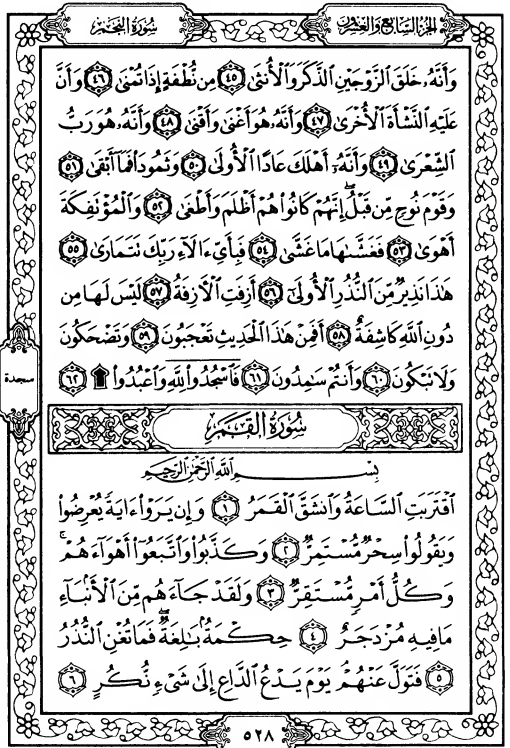 سُورَةُ النَّجْمِ
الجُزْءُ السَّابِعُ وَالعِشْرُونَ
وَأَنَّهُۥ خَلَقَ ٱلزَّوْجَيْنِ ٱلذَّكَرَ وَٱلْأُنثَىٰ ٤٥ مِن نُّطْفَةٍ إِذَا تُمْنَىٰ ٤٦ وَأَنَّ
عَلَيْهِ ٱلنَّشْأَةَ ٱلْأُخْرَىٰ ٤٧ وَأَنَّهُۥ هُوَ أَغْنَىٰ وَأَقْنَىٰ ٤٨ وَأَنَّهُۥ هُوَ رَبُّ
ٱلشِّعْرَىٰ ٤٩ وَأَنَّهُۥٓ أَهْلَكَ عَادًا ٱلْأُولَىٰ ٥٠ وَثَمُودَا۟ فَمَآ أَبْقَىٰ ٥١
وَقَوْمَ نُوحٍ مِّن قَبْلُ ۖ إِنَّهُمْ كَانُوا۟ هُمْ أَظْلَمَ وَأَطْغَىٰ ٥٢ وَٱلْمُؤْتَفِكَةَ
أَهْوَىٰ ٥٣ فَغَشَّىٰهَا مَا غَشَّىٰ ٥٤ فَبِأَىِّ ءَالَآءِ رَبِّكَ تَتَمَارَىٰ ٥٥
هَٰذَا نَذِيرٌ مِّنَ ٱلنُّذُرِ ٱلْأُولَىٰٓ ٥٦ أَزِفَتِ ٱلْءَازِفَةُ ٥٧ لَيْسَ لَهَا مِن
دُونِ ٱللَّهِ كَاشِفَةٌ ٥٨ أَفَمِنْ هَٰذَا ٱلْحَدِيثِ تَعْجَبُونَ ٥٩ وَتَضْحَكُونَ
وَلَا تَبْكُونَ ٦٠ وَأَنتُمْ سَٰمِدُونَ ٦١ فَٱسْجُدُوا۟ لِلَّهِ وَٱعْبُدُوا۟ ۩ ٦٢
سجدة
سُورَةُ القَمَرِ
بِسْمِ ٱللَّهِ ٱلرَّحْمَٰنِ ٱلرَّحِيمِ
ٱقْتَرَبَتِ ٱلسَّاعَةُ وَٱنشَقَّ ٱلْقَمَرُ ١ وَإِن يَرَوْا۟ ءَايَةً يُعْرِضُوا۟
وَيَقُولُوا۟ سِحْرٌ مُّسْتَمِرٌّ ٢ وَكَذَّبُوا۟ وَٱتَّبَعُوٓا۟ أَهْوَآءَهُمْ ۚ
وَكُلُّ أَمْرٍ مُّسْتَقِرٌّ ٣ وَلَقَدْ جَآءَهُم مِّنَ ٱلْأَنۢبَآءِ
مَا فِيهِ مُزْدَجَرٌ ٤ حِكْمَةٌۢ بَٰلِغَةٌ ۖ فَمَا تُغْنِ ٱلنُّذُرُ
٥ فَتَوَلَّ عَنْهُمْ ۘ يَوْمَ يَدْعُ ٱلدَّاعِ إِلَىٰ شَىْءٍ نُّكُرٍ ٦
٥٢٨